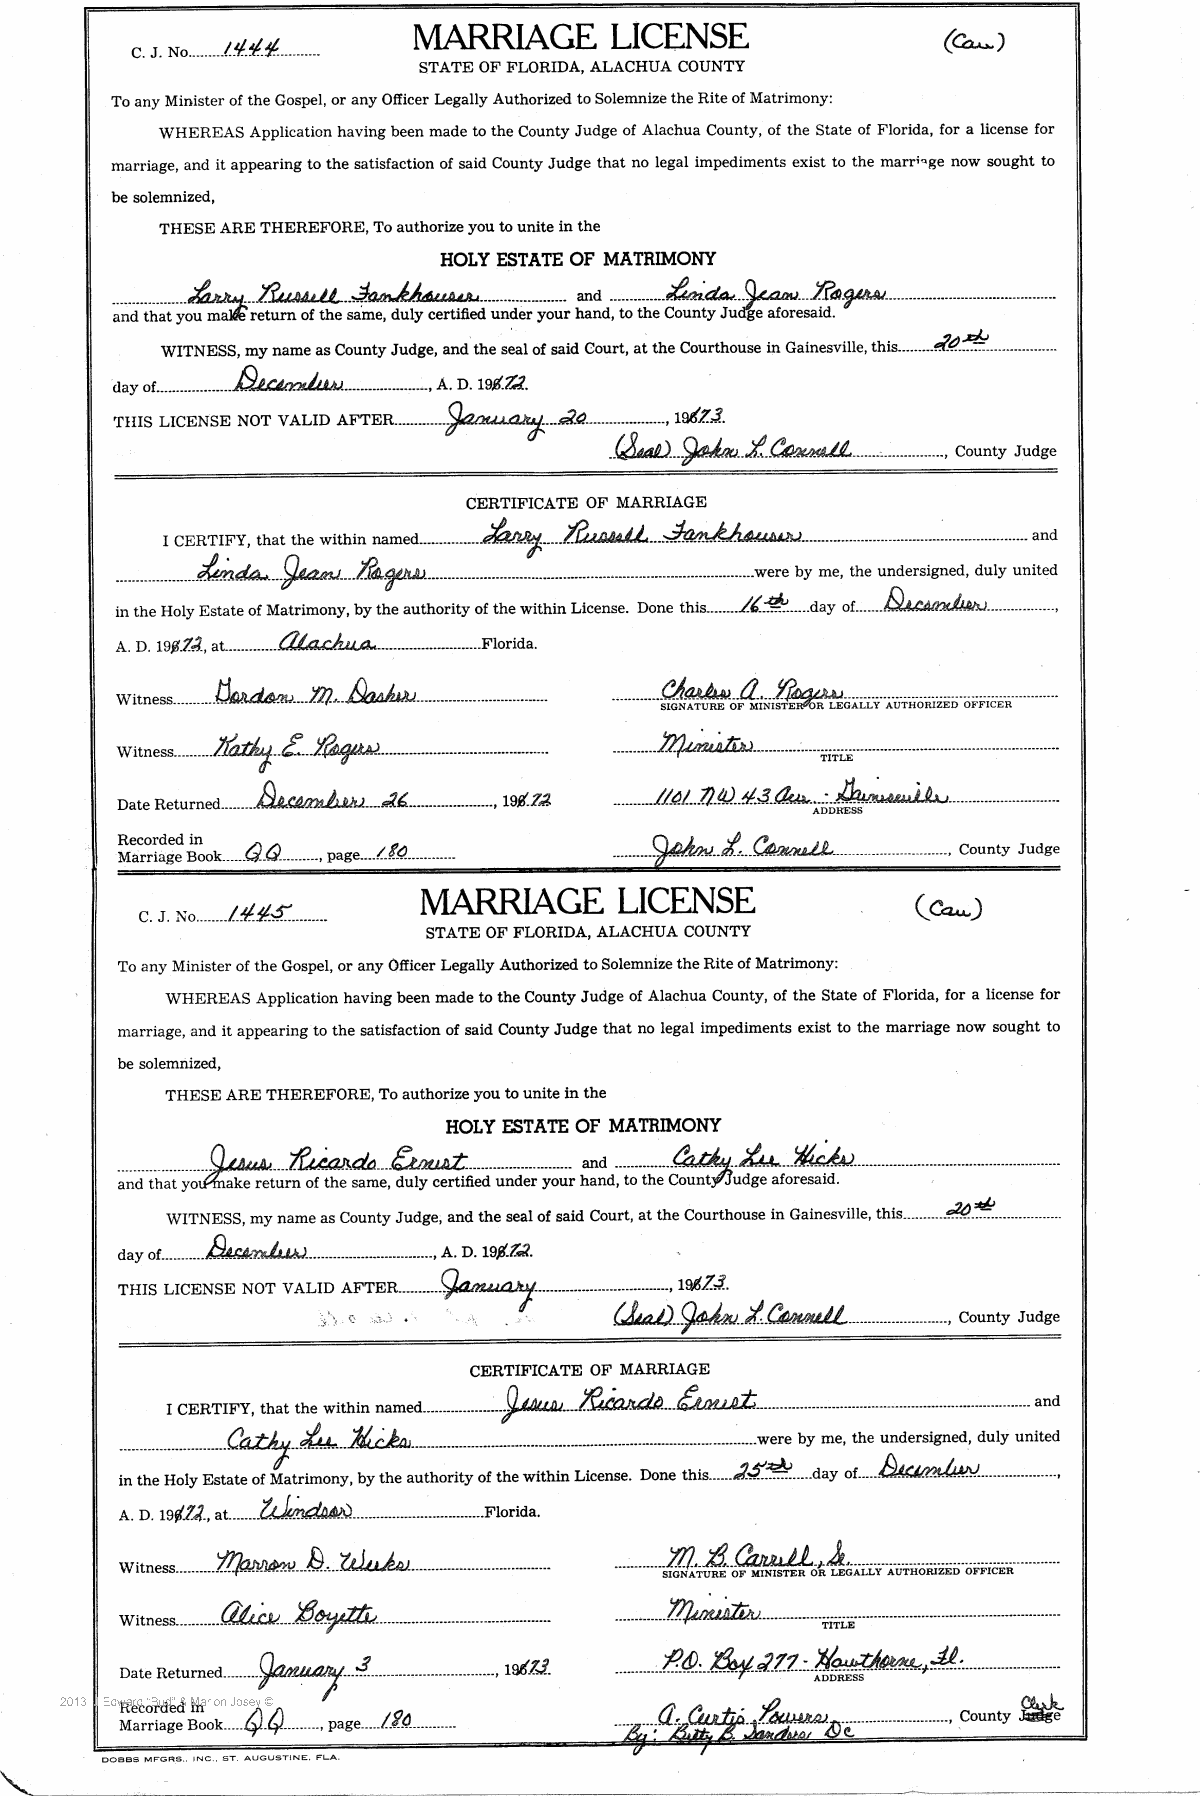 C. J. No. 1444 MARRIAGE LICENSE (Cau)
STATE OF FLORIDA, ALACHUA COUNTY
To any Minister of the Gospel, or any Officer Legally Authorized to Solemnize the Rite of Matrimony:
WHEREAS Application having been made to the County Judge of Alachua County, of the State of Florida, for a license for
marriage, and it appearing to the satisfaction of said County Judge that no legal impediments exist to the marriage now sought to
be solemnized,
THESE ARE THEREFORE, To authorize you to unite in the
HOLY ESTATE OF MATRIMONY
Larry Russell Fankhouser and Linda Jean Rogers
and that you make return of the same, duly certified under your hand, to the County Judge aforesaid.
WITNESS, my name as County Judge, and the seal of said Court, at the Courthouse in Gainesville, this 20th
day of December, A. D. 1972.
THIS LICENSE NOT VALID AFTER January 20, 1973.
(Seal) John L. Connell, County Judge
CERTIFICATE OF MARRIAGE
I CERTIFY, that the within named Larry Russell Fankhouser and
Linda Jean Rogers were by me, the undersigned, duly united
in the Holy Estate of Matrimony, by the authority of the within License. Done this 16th day of December,
A. D. 1972, at Alachua Florida.
Witness Gordon M. Dasher Charles A. Rogers
SIGNATURE OF MINISTER OR LEGALLY AUTHORIZED OFFICER
Witness Kathy E. Rogers Minister
TITLE
Date Returned December 26, 1972 1101 NW 43 Ave - Gainesville
ADDRESS
Recorded in
Marriage Book QQ, page 180 John L. Connell, County Judge
C. J. No. 1445 MARRIAGE LICENSE (Cau)
STATE OF FLORIDA, ALACHUA COUNTY
To any Minister of the Gospel, or any Officer Legally Authorized to Solemnize the Rite of Matrimony:
WHEREAS Application having been made to the County Judge of Alachua County, of the State of Florida, for a license for
marriage, and it appearing to the satisfaction of said County Judge that no legal impediments exist to the marriage now sought to
be solemnized,
THESE ARE THEREFORE, To authorize you to unite in the
HOLY ESTATE OF MATRIMONY
Jesus Ricardo Ernest and Cathy Lee Hicks
and that you make return of the same, duly certified under your hand, to the County Judge aforesaid.
WITNESS, my name as County Judge, and the seal of said Court, at the Courthouse in Gainesville, this 20th
day of December, A. D. 1972.
THIS LICENSE NOT VALID AFTER January, 1973.
(Seal) John L. Connell, County Judge
CERTIFICATE OF MARRIAGE
I CERTIFY, that the within named Jesus Ricardo Ernest and
Cathy Lee Hicks were by me, the undersigned, duly united
in the Holy Estate of Matrimony, by the authority of the within License. Done this 25th day of December,
A. D. 1972, at Windsor Florida.
Witness Marron D. Weeks M. B. Carrell, Sr.
SIGNATURE OF MINISTER OR LEGALLY AUTHORIZED OFFICER
Witness Alice Boyette Minister
TITLE
Date Returned January 3, 1973 P.O. Box 277 - Hawthorne, Fl.
ADDRESS
2013 Edward "Bud" & Marion Josey ©
Recorded in Clerk
Marriage Book QQ, page 180 A. Curtis Powers, County Judge
By: Betty B. Sanders DC
DOBBS MFGRS., INC., ST. AUGUSTINE, FLA.